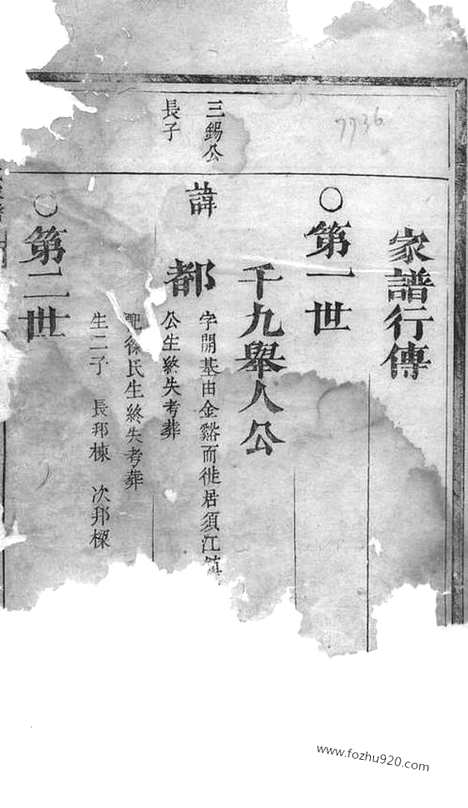 7736
家譜行傳
○第一世
千九舉人公
三錫公
長子
諱都
字開基由金谿而徙居須江鎮
公生終失考葬
配徐氏生終失考葬
生二子 長邦棟 次邦樑
○第二世
www.fozhu920.com